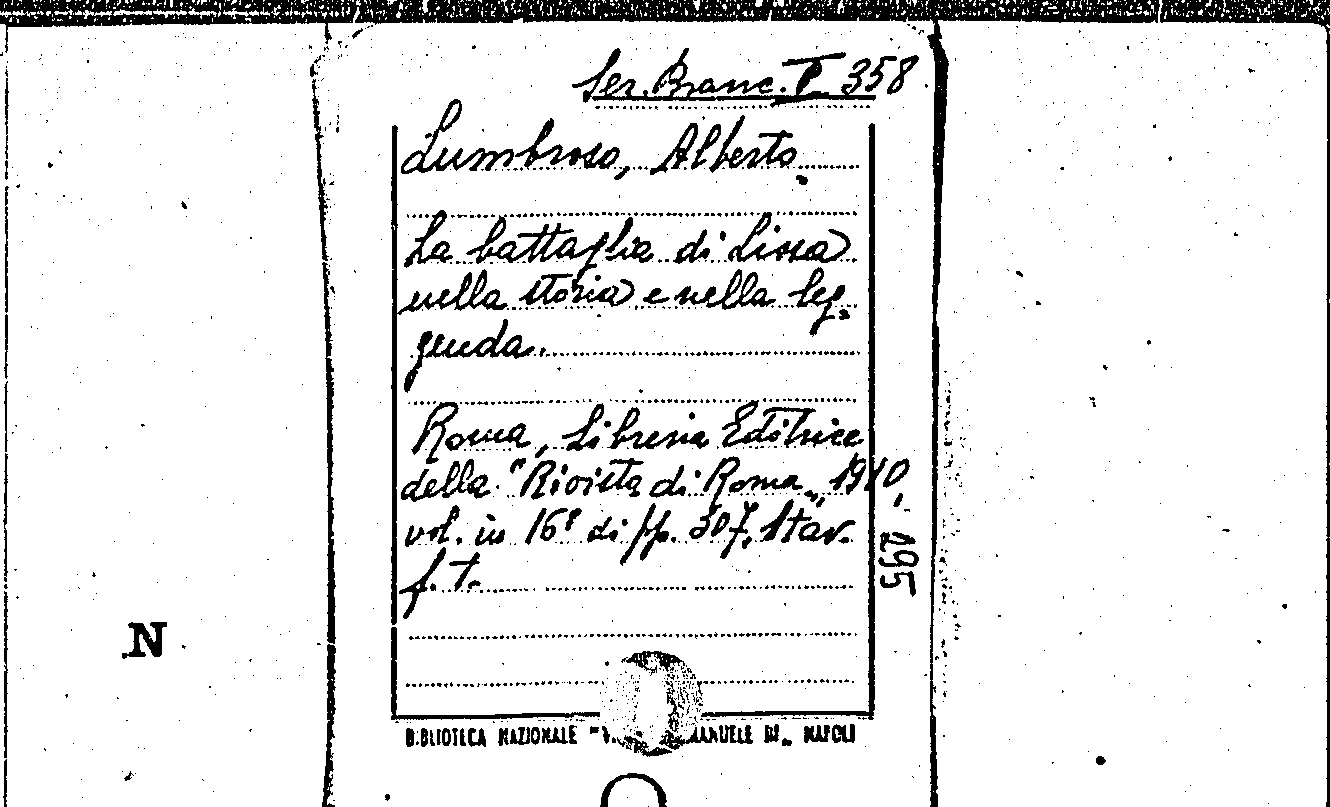 Ser. Branc. I 358
Lumbroso, Alberto
La battaglia di Lissa
nella storia e nella leg-
genda.
Roma, Libreria Editrice
della "Rivista di Roma", 1910,
vol. in 16º di pp. 307, 1 tav.
f. t.
295
N
BIBLIOTECA NAZIONALE " MANUELE III" NAPOLI